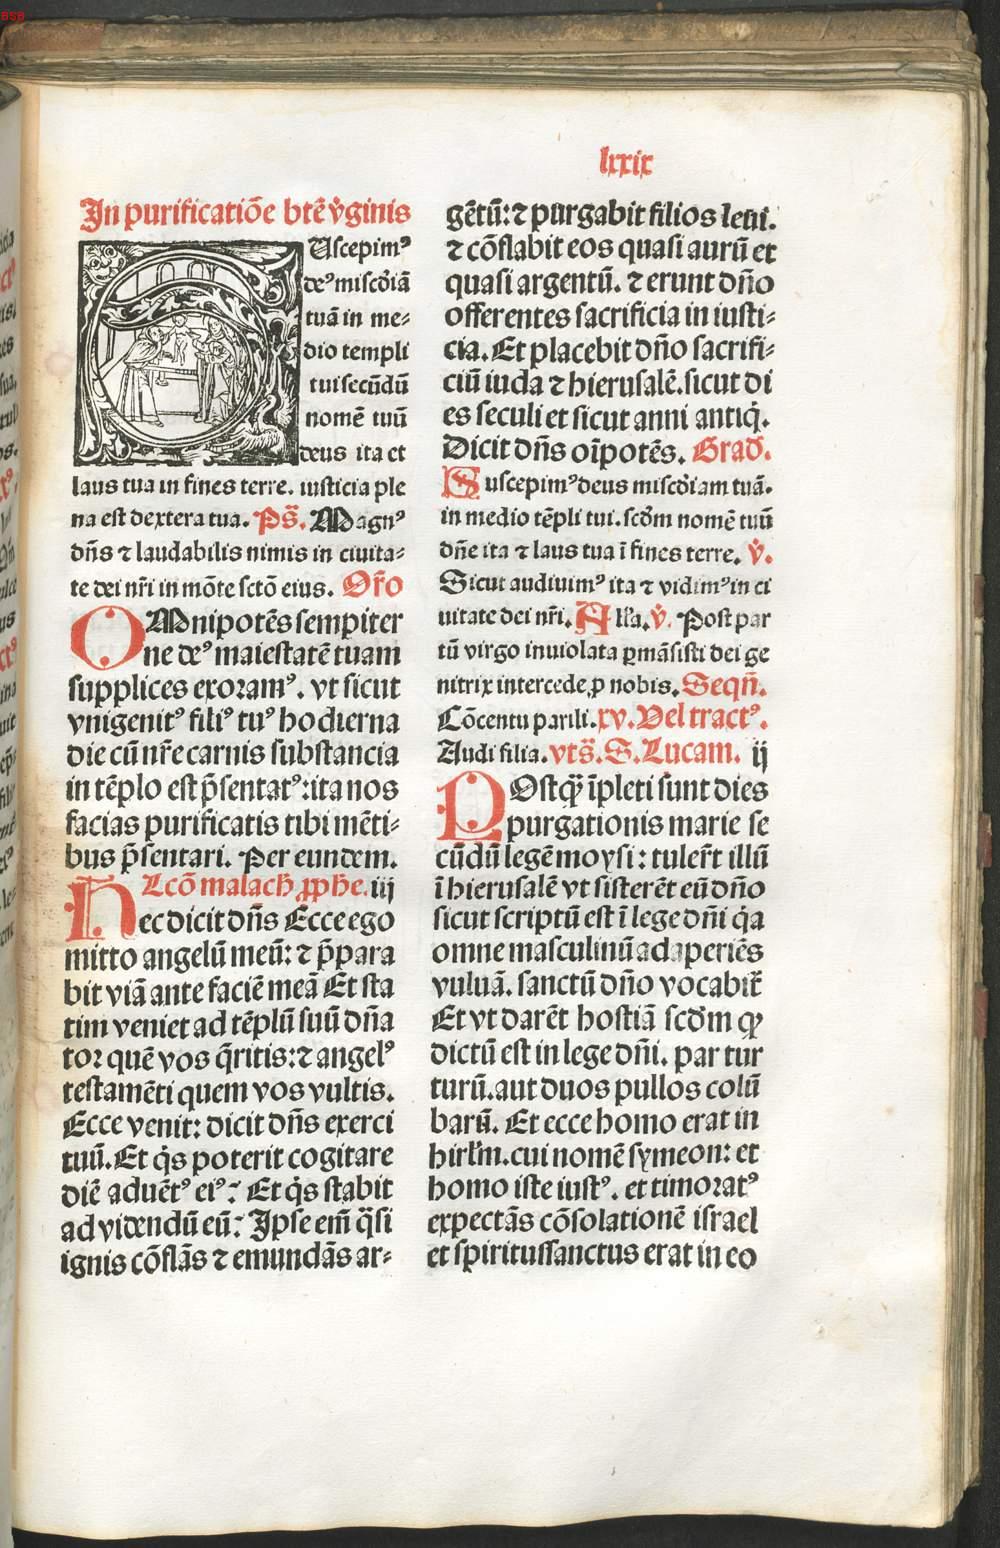 BSB
lxxix
In purificatiōe btē v̇ginis
SUscepimꝰ
deꝰ misc̄diā
tuā in me⸗
dio templi
tui secūdū
nomē tuū
deus ita et
laus tua in fines terre. iusticia ple
na est dextera tua. Ps̄. Magnꝰ
dn̄s ⁊ laudabilis nimis in ciuita⸗
te dei nr̄i in mōte sctō eius. Or̄o
OMnipotēs sempiter
ne deꝰ maiestatē tuam
supplices exoramꝰ. vt sicut
vnigenitꝰ filiꝰ tuꝰ hodierna
die cū nr̄e carnis substancia
in tēplo est p̄sentatꝰ: ita nos
facias purificatis tibi mēti⸗
bus p̄sentari. Per eundem.
Lcō malach̄ ꝓphe. iij
Hec dicit dn̄s Ecce ego
mitto angelū meū: ⁊ p̄para
bit viā ante faciē meā Et sta
tim veniet ad tēplū suū dn̄a
tor quē vos q̄ritis: ⁊ angelꝰ
testamēti quem vos vultis.
Ecce venit: dicit dn̄s exerci
tuū. Et q̇s poterit cogitare
diē aduētꝰ eiꝰ: Et q̇s stabit
ad videndū eū: Ipse em̄ q̄si
ignis cōflās ⁊ emundās ar⸗
gētū: ⁊ purgabit filios leui.
⁊ cōflabit eos quasi aurū et
quasi argentū. ⁊ erunt dn̄o
offerentes sacrificia in iusti⸗
cia. Et placebit dn̄o sacrifi⸗
ciū iuda ⁊ hierusalē. sicut di
es seculi et sicut anni antiq̇.
Dicit dn̄s oīpotēs. Grad̄.
Suscepimꝰ deus misc̄diam tuā.
in medio tēpli tui. scd̄m nomē tuū
dn̄e ita ⁊ laus tua ī fines terre. v̇.
Sicut audiuimꝰ ita ⁊ vidimꝰ in ci
uitate dei nr̄i. Alła. v̇. Post par
tū virgo inuiolata ꝑmāsisti dei ge
nitrix intercede ꝓ nobis. Seqn̄.
Cōcentu parili. xv. Vel tractꝰ.
Audi filia. vts̄. S. Lucam. ij
POstꝙ̄ īpleti sunt dies
purgationis marie se
cūdū legē moysi: tuler̄t illū
ī hierusalē vt sisterēt eū dn̄o
sicut scriptū est ī lege dn̄i q̇a
omne masculinū adaperiēs
vuluā. sanctū dn̄o vocabit̄
Et vt darēt hostiā scd̄m ꝙ
dictū est in lege dn̄i. par tur
turū. aut duos pullos colū
barū. Et ecce homo erat in
hirłm. cui nomē symeon: et
homo iste iustꝰ. et timoratꝰ
expectās cōsolationē israel
et spiritussanctus erat in eo